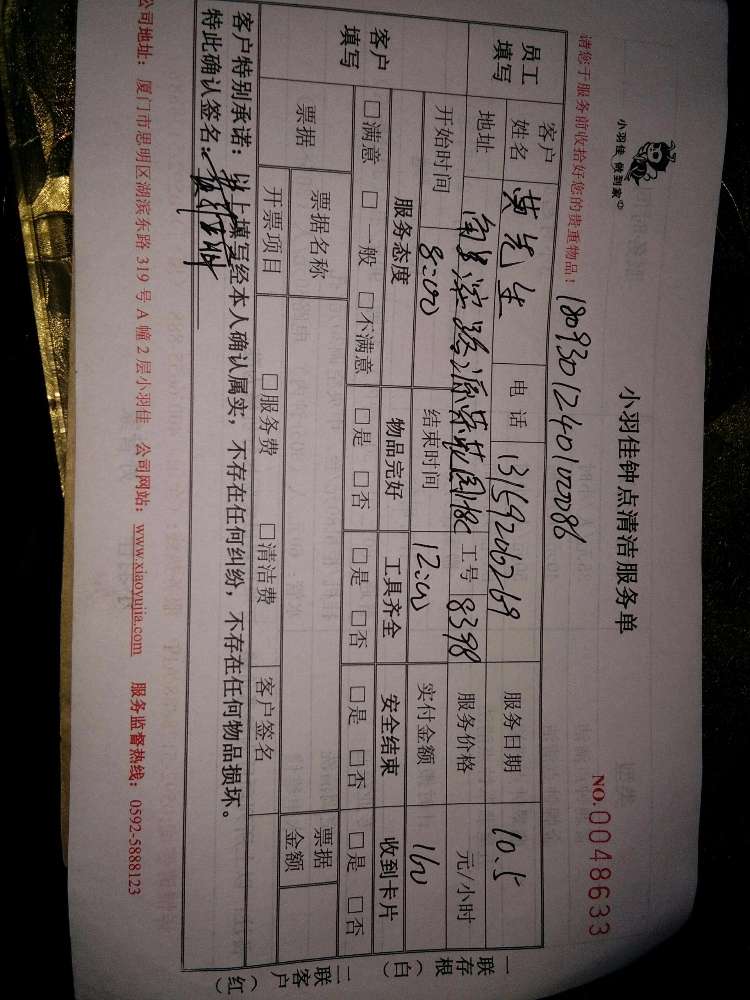 小羽佳 做到家
小羽佳钟点清洁服务单
NO.0048633
请您于服务前收拾好您的贵重物品！
18093012401000086
员工填写 客户姓名 黄先生 电话 13159206769 服务日期 10.5
地址 工号 8398 服务价格 元/小时
开始时间 8:00 结束时间 12:00 实付金额 160
客户填写 服务态度 物品完好 工具齐全 安全结束 收到卡片
□满意 □一般 □不满意 □是 □否 □是 □否 □是 □否 □是 □否
票据 票据名称 票据金额
开票项目 □服务费 □清洁费 客户签名
客户特别承诺：以上填写经本人确认属实，不存在任何纠纷，不存在任何物品损坏。
特此确认签名：
公司地址：厦门市思明区湖滨东路 319 号 A 幢 2 层小羽佳 公司网站：www.xiaoyujia.com 服务监督热线：0592-5888123
一联存根（白）
二联客户（红）